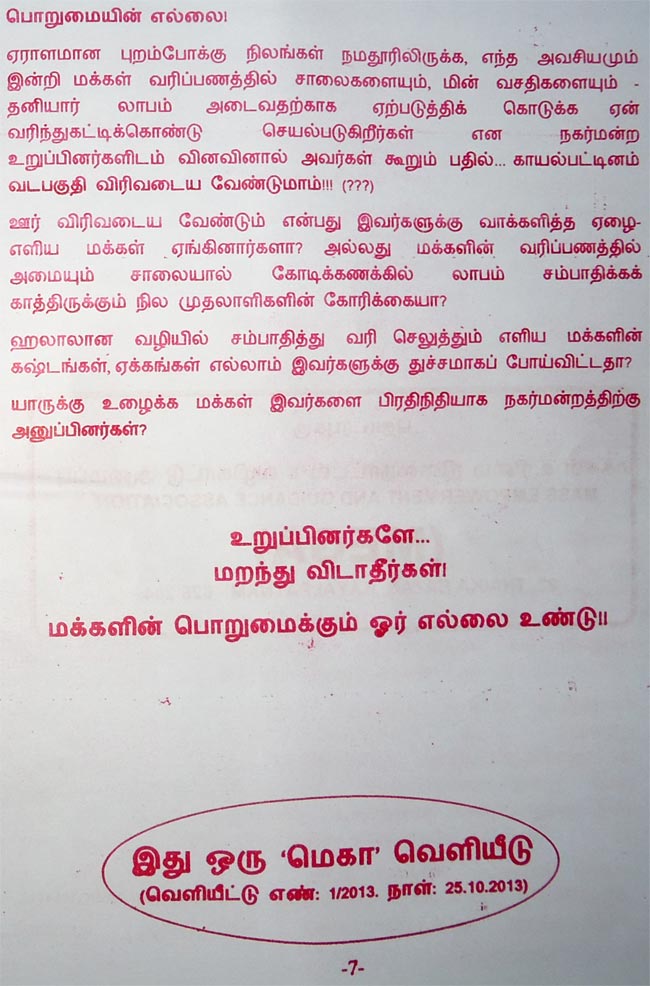 பொறுமையின் எல்லை!
ஏராளமான புறம்போக்கு நிலங்கள் நமதூரிலிருக்க, எந்த அவசியமும்
இன்றி மக்கள் வரிப்பணத்தில் சாலைகளையும், மின் வசதிகளையும் -
தனியார் லாபம் அடைவதற்காக ஏற்படுத்திக் கொடுக்க ஏன்
வரிந்துகட்டிக்கொண்டு செயல்படுகிறீர்கள் என நகர்மன்ற
உறுப்பினர்களிடம் வினவினால் அவர்கள் கூறும் பதில்... காயல்பட்டினம்
வடபகுதி விரிவடைய வேண்டுமாம்!!! (???)
ஊர் விரிவடைய வேண்டும் என்பது இவர்களுக்கு வாக்களித்த ஏழை-
எளிய மக்கள் ஏங்கினார்களா? அல்லது மக்களின் வரிப்பணத்தில்
அமையும் சாலையால் கோடிக்கணக்கில் லாபம் சம்பாதிக்கக்
காத்திருக்கும் நில முதலாளிகளின் கோரிக்கையா?
ஹலாலான வழியில் சம்பாதித்து வரி செலுத்தும் எளிய மக்களின்
கஷ்டங்கள், ஏக்கங்கள் எல்லாம் இவர்களுக்கு துச்சமாகப் போய்விட்டதா?
யாருக்கு உழைக்க மக்கள் இவர்களை பிரதிநிதியாக நகர்மன்றத்திற்கு
அனுப்பினர்கள்?
உறுப்பினர்களே...
மறந்து விடாதீர்கள்!
மக்களின் பொறுமைக்கும் ஓர் எல்லை உண்டு!!
இது ஒரு 'மெகா' வெளியீடு
(வெளியீட்டு எண்: 1/2013. நாள்: 25.10.2013)
-7-